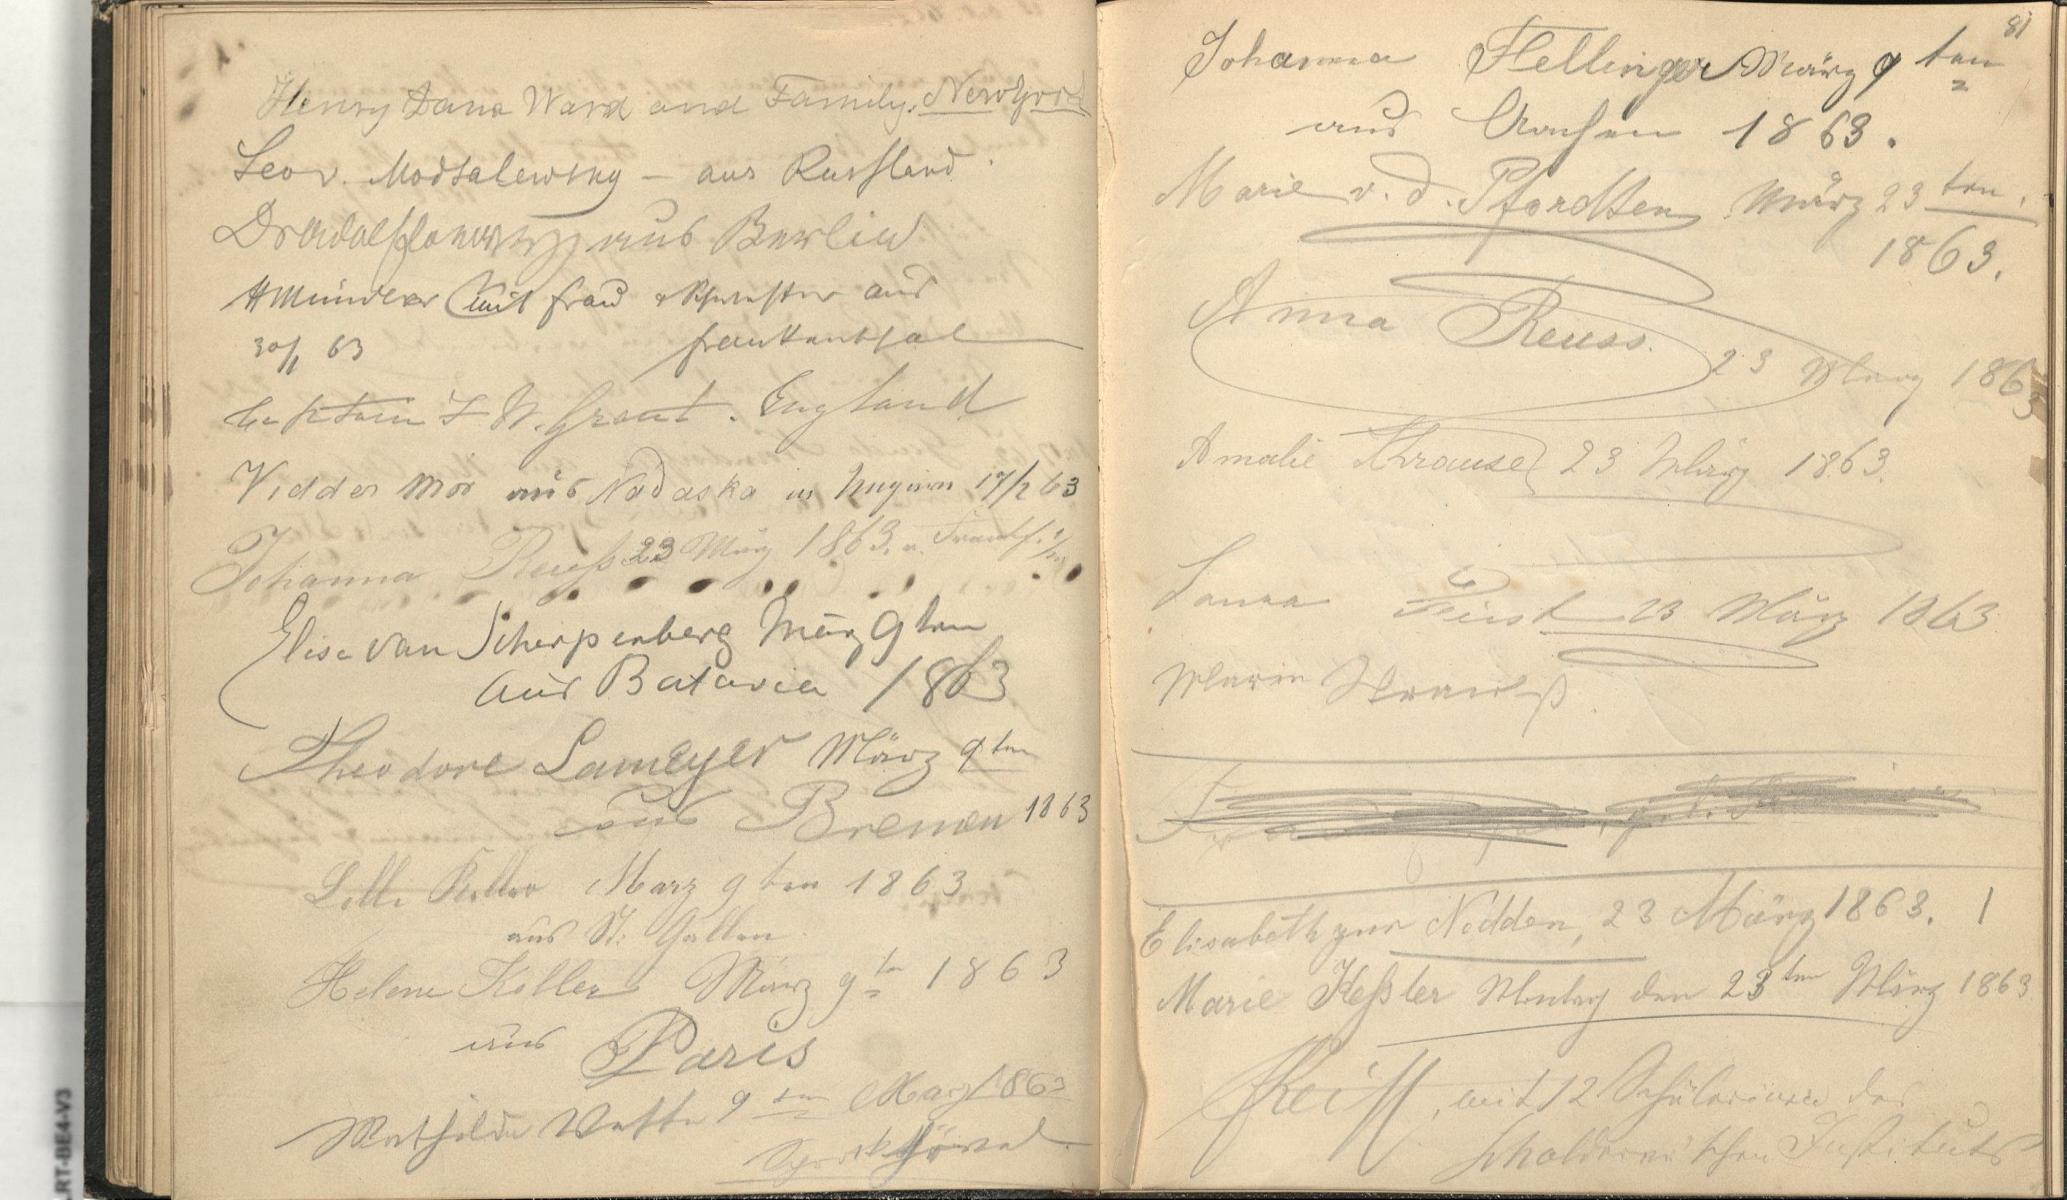 Henry Dana Ward and Family. New York
Leo v. Modsalewsky - aus Russland
Dr Adolf aus Berlin
mit Frau aus
30/1 63 Frankenthal
Captain F W. Grant. England
Vidder Mór aus Nadaska in Ungarn 17/2 63
Johanna Reuß 23 März 1863. a. Frankf. a/m
Elise van Scherpenberg März 9ten
aus Batavia 1863
Theodore Lameyer März 9ten
aus Bremen 1863
Lilli Keller März 9ten 1863
aus St. Gallen
Helene Koller März 9ten 1863
aus Paris
Mathilde 9ten März 1863
Sprockhövel
81
Johanna Fellinger März 9ten
aus Aachen 1863.
Marie v. d. Pfordten März 23ten.
1863.
Anna Reuss.
23 März 1863
Amalie Krause 23 März 1863.
Laura Feist 23 März 1863
Marie Strauß
Elisabeth zur Nedden, 23 März 1863. 1
Marie Keßler Montag den 23ten März 1863
Reiff, mit 12 Schülerinnen des
Scholderer'schen Instituts